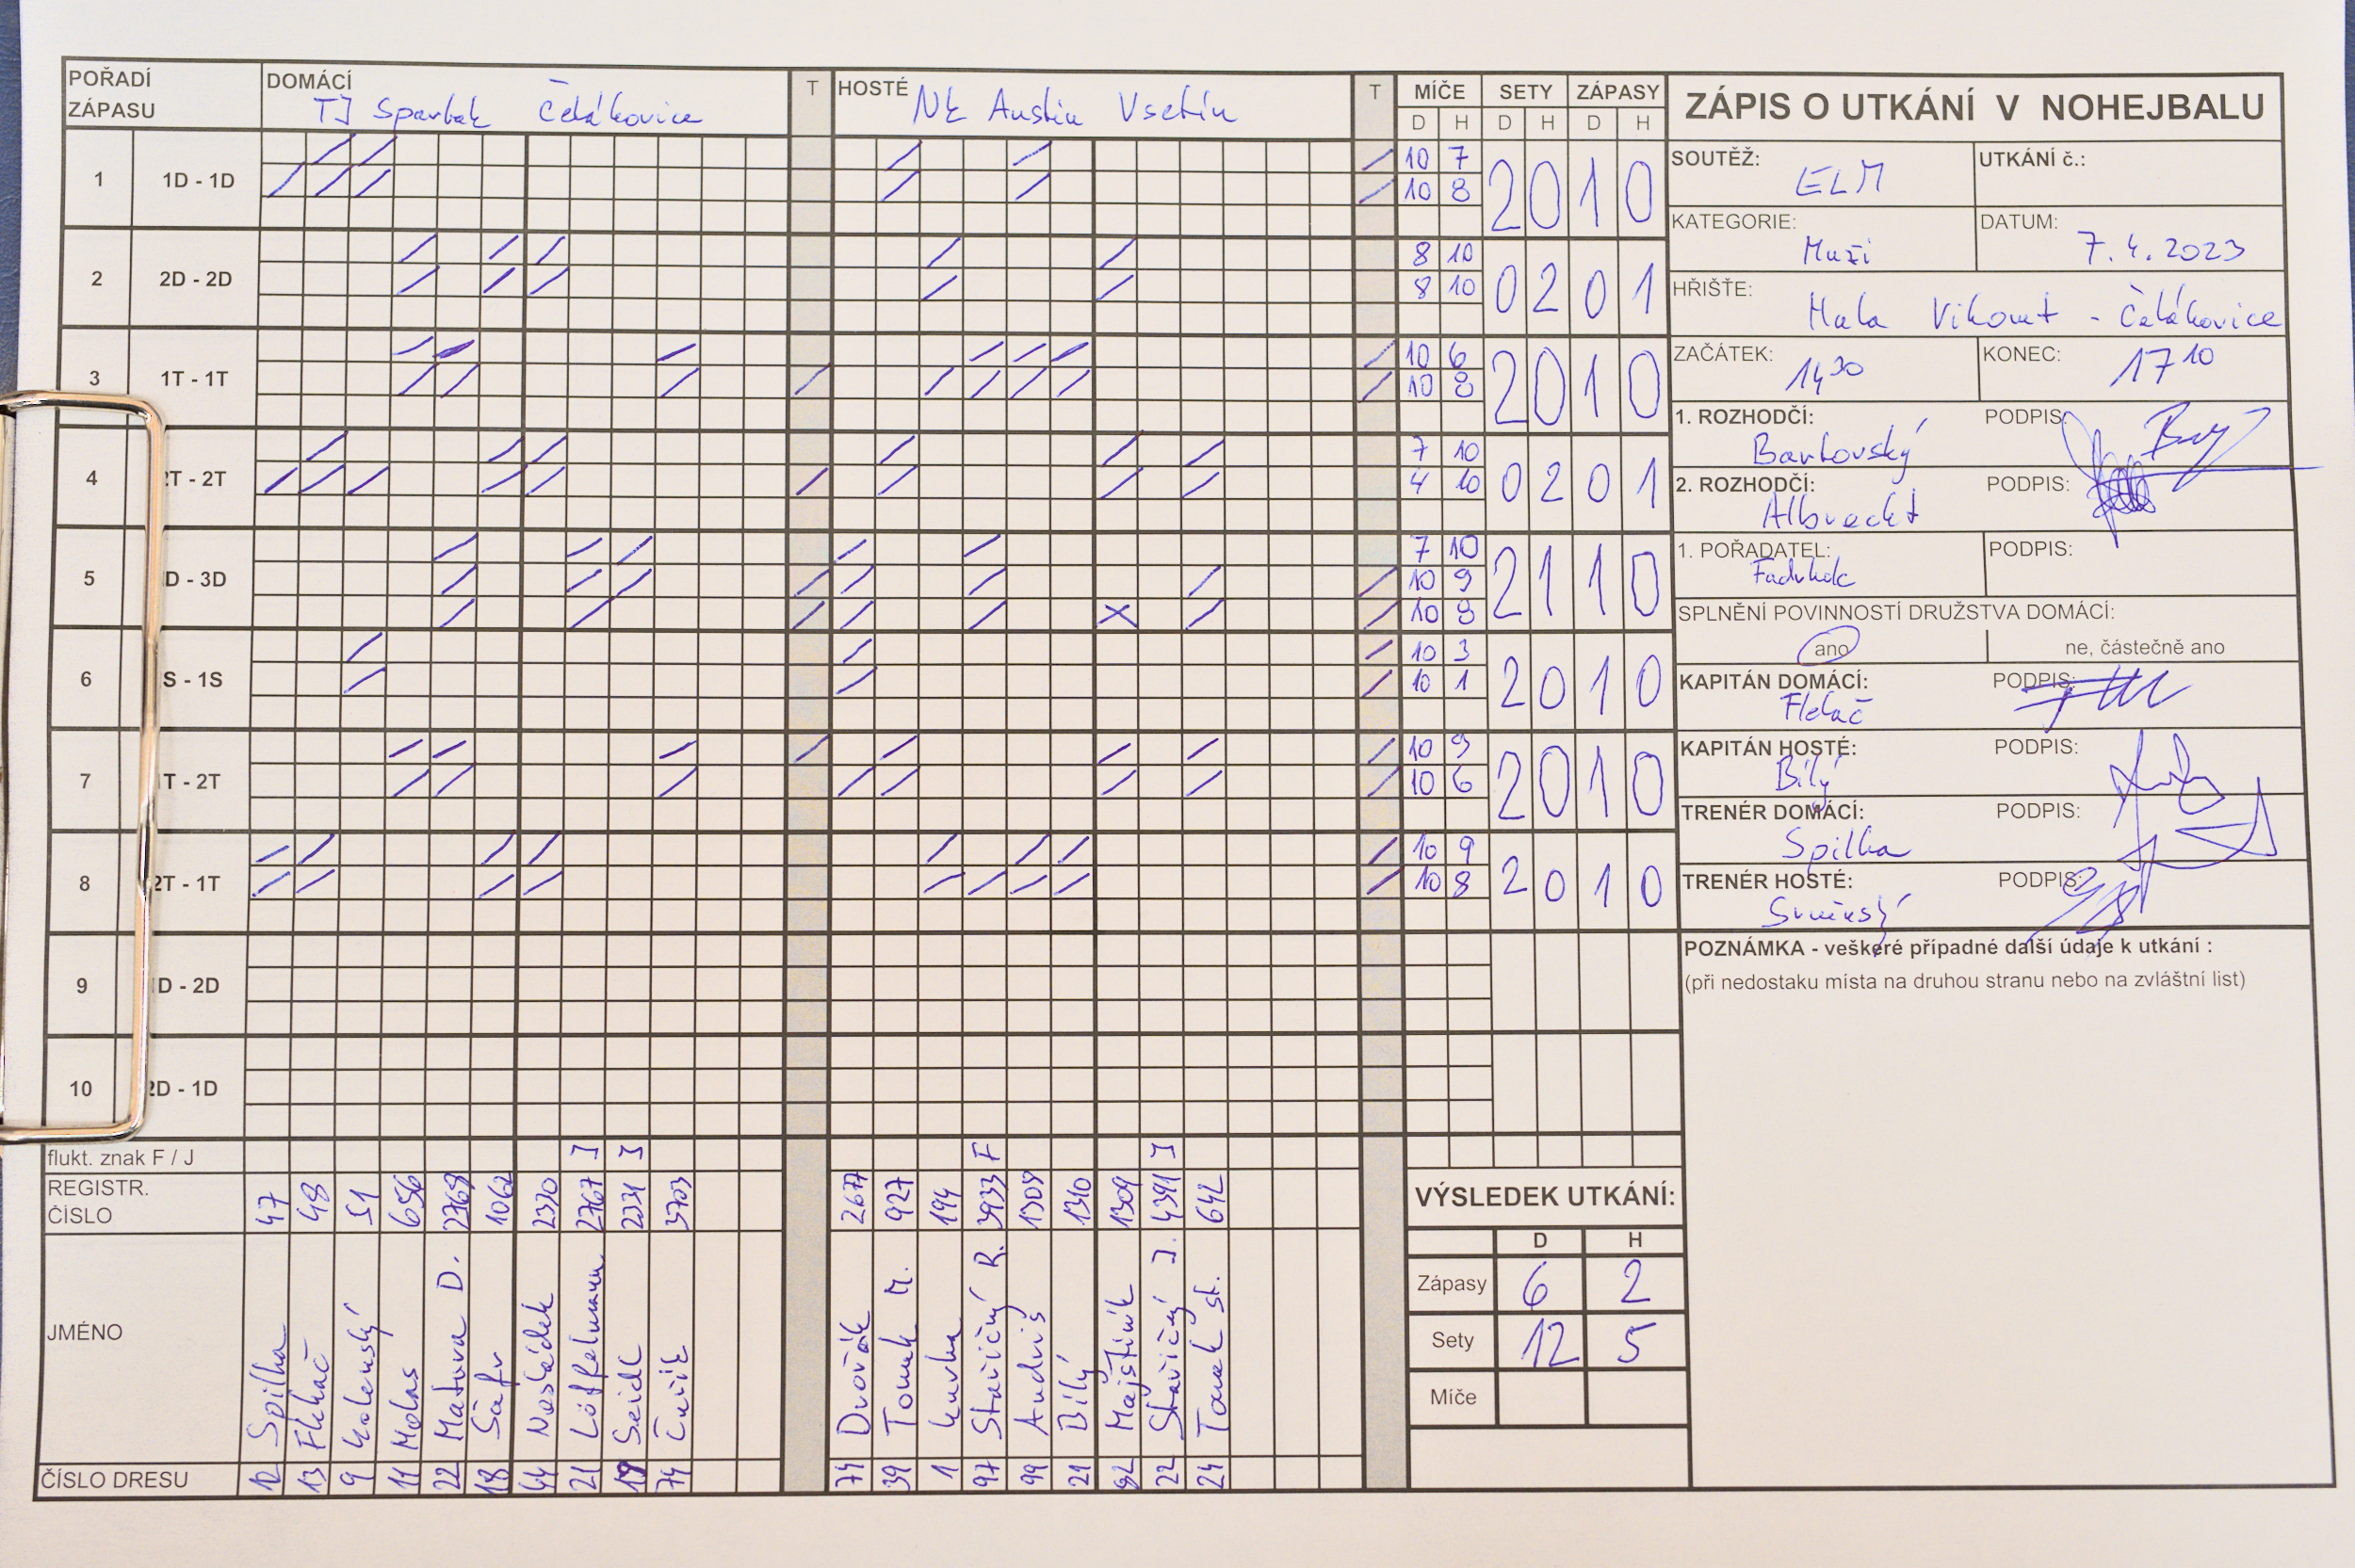 POŘADÍ ZÁPASU DOMÁCÍ TJ Spartak Čelákovice T HOSTÉ NK Austin Vsetín T MÍČE SETY ZÁPASY
D H D H D H
1 1D - 1D 10 7 2 0 1 0
10 8
2 2D - 2D 8 10 0 2 0 1
8 10
3 1T - 1T 10 6 2 0 1 0
10 8
4 2T - 2T 7 10 0 2 0 1
4 10
5 D - 3D 7 10 2 1 1 0
10 9
10 8
6 S - 1S 10 3 2 0 1 0
10 1
7 1T - 2T 10 9 2 0 1 0
10 6
8 2T - 1T 10 9 2 0 1 0
10 8
9 D - 2D
10 2D - 1D
flukt. znak F / J J J F J
REGISTR. ČÍSLO 47 48 51 656 2768 1062 2330 2767 2331 3703 2677 927 194 3933 1308 1310 1309 4391 642
JMÉNO Spilka Flekač Kolenský Mokas Matura D. Šafr Nosládek Löffelmann Seidl Čuřík Dvořák Tomek M. Kurka Stavičný R. Andris Bílý Majštiník Stavičný J. Tomek st.
ČÍSLO DRESU 12 13 9 11 22 18 44 21 19 74 74 39 1 97 99 21 82 22 24
VÝSLEDEK UTKÁNÍ:
D H
Zápasy 6 2
Sety 12 5
Míče
ZÁPIS O UTKÁNÍ V NOHEJBALU
SOUTĚŽ: ELM UTKÁNÍ č.:
KATEGORIE: Muži DATUM: 7.4.2023
HŘIŠTĚ: Hala Vikomt - Čelákovice
ZAČÁTEK: 14 30 KONEC: 17 10
1. ROZHODČÍ: Barkovský PODPIS:
2. ROZHODČÍ: Albrecht PODPIS:
1. POŘADATEL: PODPIS:
SPLNĚNÍ POVINNOSTÍ DRUŽSTVA DOMÁCÍ:
ano ne, částečně ano
KAPITÁN DOMÁCÍ: Flekač PODPIS:
KAPITÁN HOSTÉ: Bílý PODPIS:
TRENÉR DOMÁCÍ: Spilka PODPIS:
TRENÉR HOSTÉ: PODPIS:
POZNÁMKA - veškeré případné další údaje k utkání :
(při nedostaku místa na druhou stranu nebo na zvláštní list)